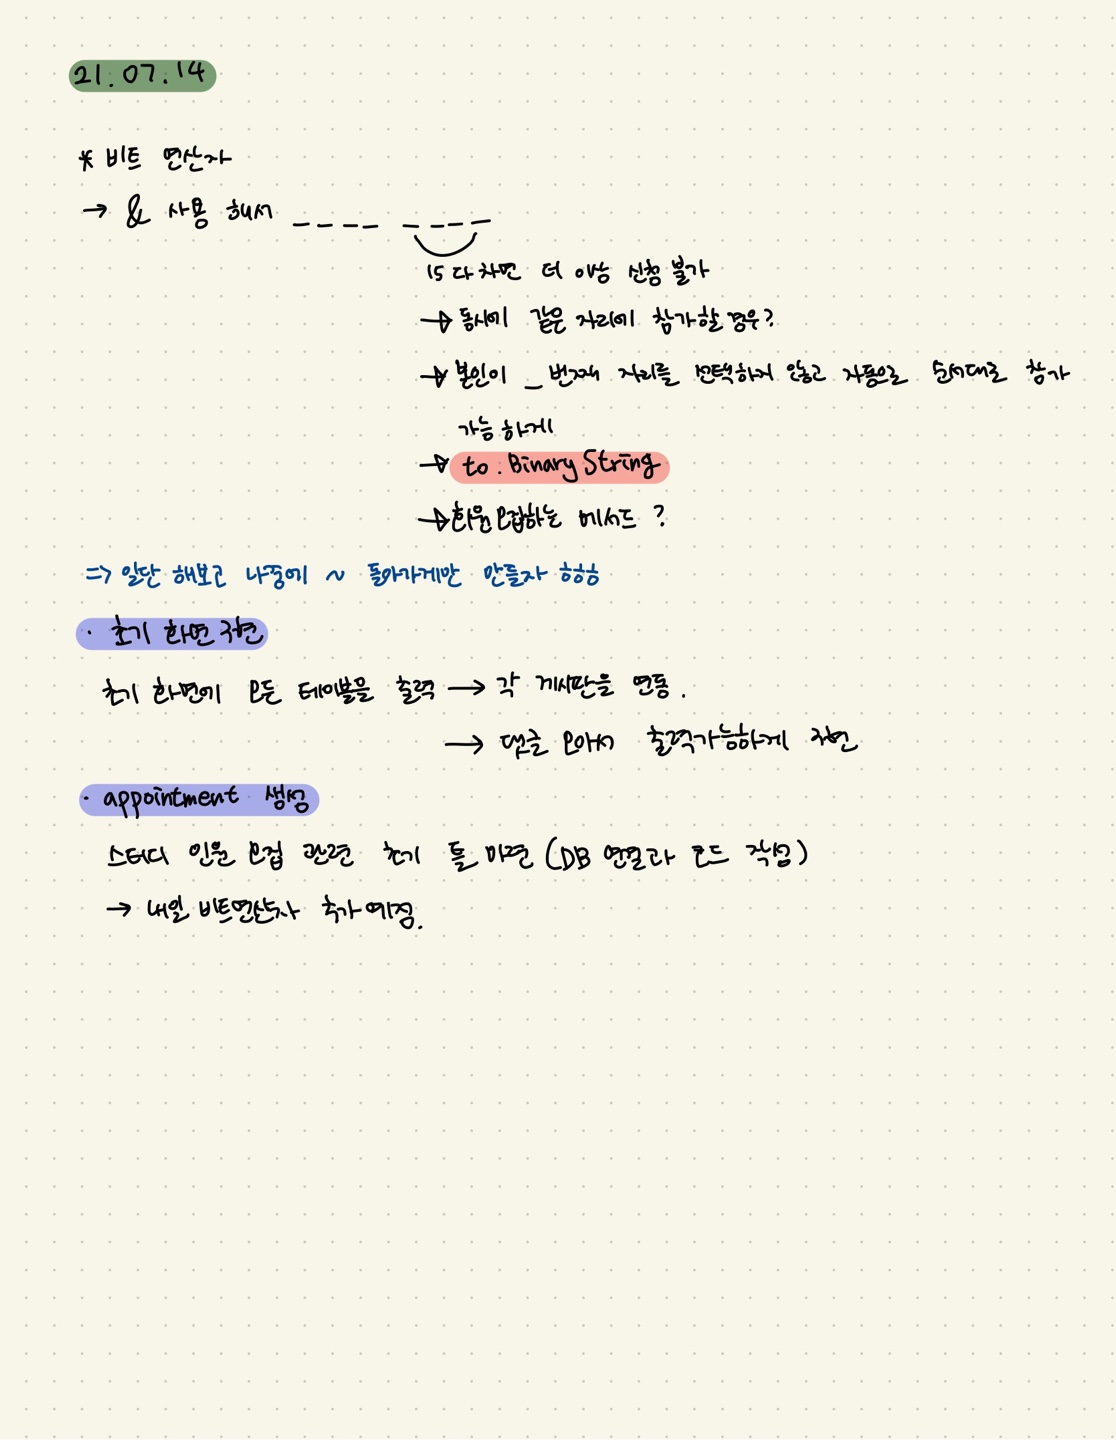 21.07.14
* 비트 연산자
→ & 사용 해서 _ _ _ _ _ _ _ _
15 다 차면 더 이상 신청 불가
→ 동시에 같은 자리에 참가할 경우?
→ 본인이 _ 번째 자리를 선택하지 않고 자동으로 순서대로 참가
가능 하게
→ to. Binary String
→ 회원 모집하는 메서드 ?
=> 일단 해보고 나중에 ~ 돌아가게만 만들자 하하하
· 초기 화면 구현
초기 화면에 모든 테이블을 출력 → 각 게시판을 연동.
→ 댓글 모아서 출력가능하게 구현
· appointment 생성
스터디 인원 모집 관련 초기 틀 마련 (DB 연결과 코드 작성)
→ 내일 비트연산자 추가 예정.